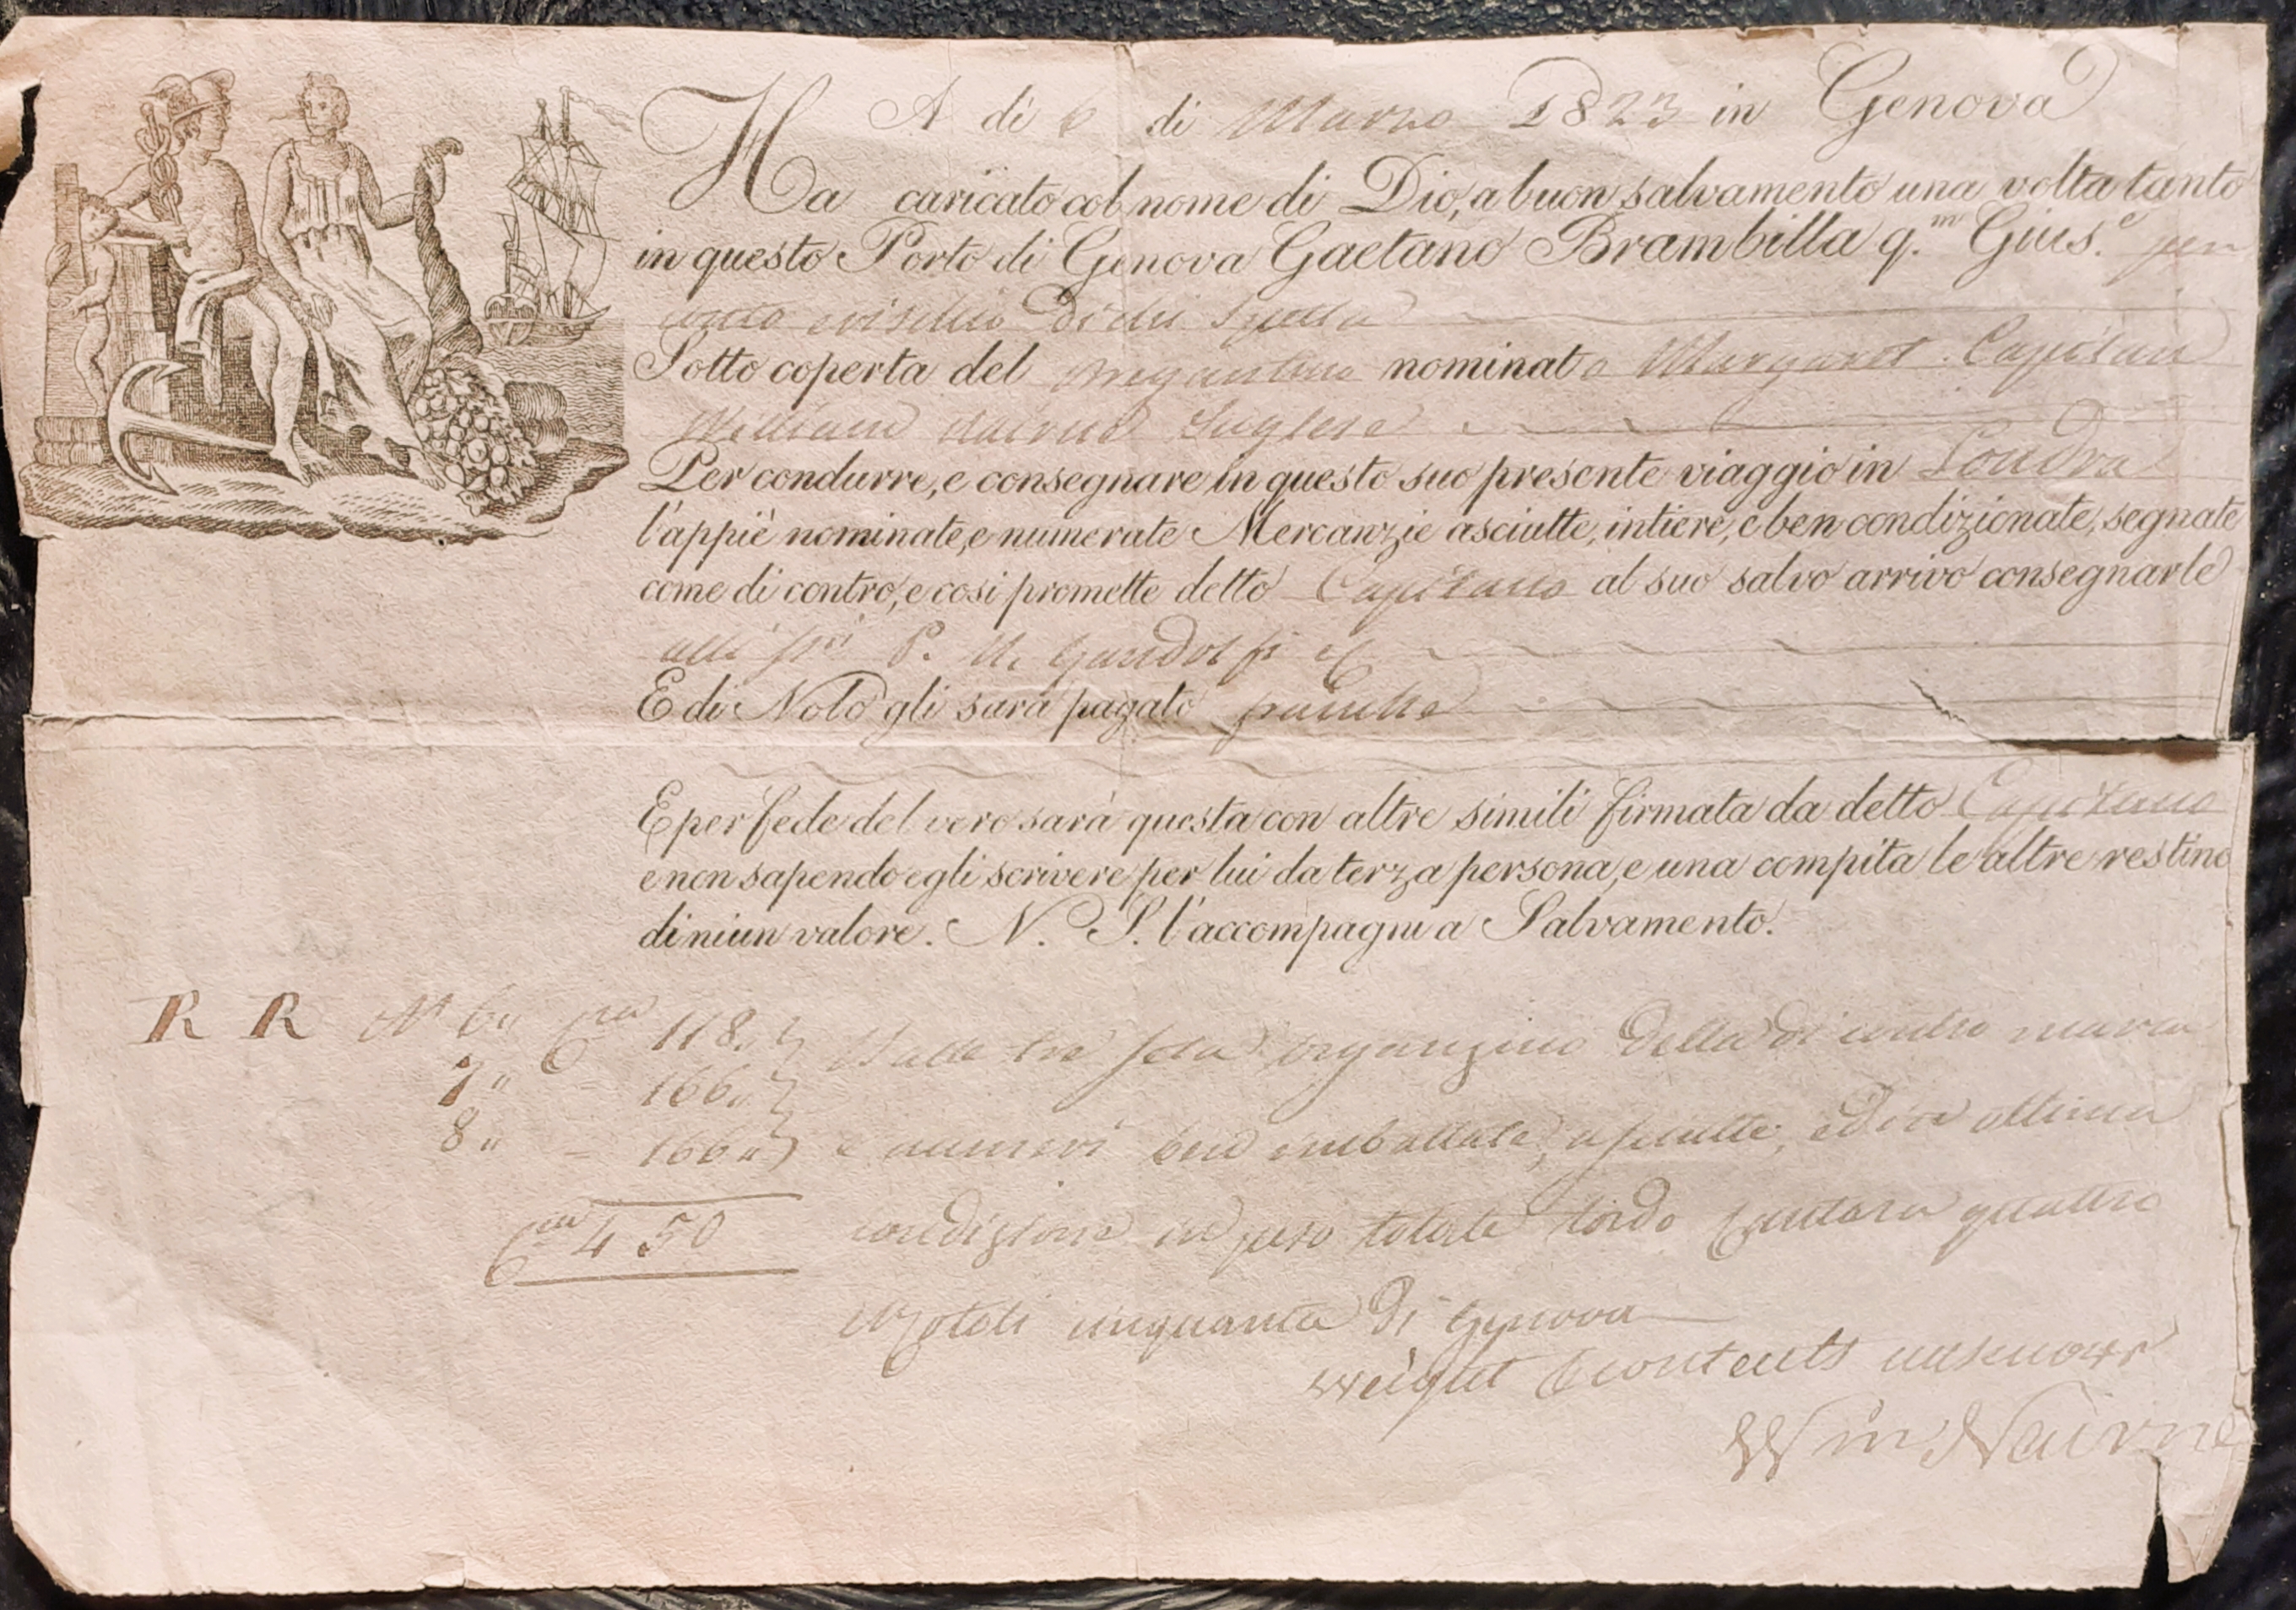 A di 6 di Marzo 1823 in Genova
Ha caricato col nome di Dio, a buon salvamento una volta tanto
in questo Porto di Genova Gaetano Brambilla q.m Gius.e per
conto e rischio di chi spetta
Sotto coperta del Brigantino nominato Margaret Capitan
William Nairne Inglese
Per condurre, e consegnare in questo suo presente viaggio in Londra
l'appiè nominate, e numerate Mercanzie asciutte, intiere, e ben condizionate, segnate
come di contro, e cosi promette detto Capitano al suo salvo arrivo consegnarle
alli Sri P. M. Gandolfi
E di Nolo gli sarà pagato
E per fede del vero sarà questa con altre simili firmata da detto Capitano
e non sapendo egli scrivere per lui da terza persona, e una compita le altre restino
di niun valore. N. S. l'accompagni a Salvamento.
R R N 6" Cra 118" Balle tre seta organzino della di contro marca
7" = 166"
8" = 166" e numeri ben imballate, asciutte, ed in ottima
Cra 450 condizione in peso totale lordo Cantara quattro
e rotoli cinquanta di Genova
weight & contents unknown
Wm Nairne